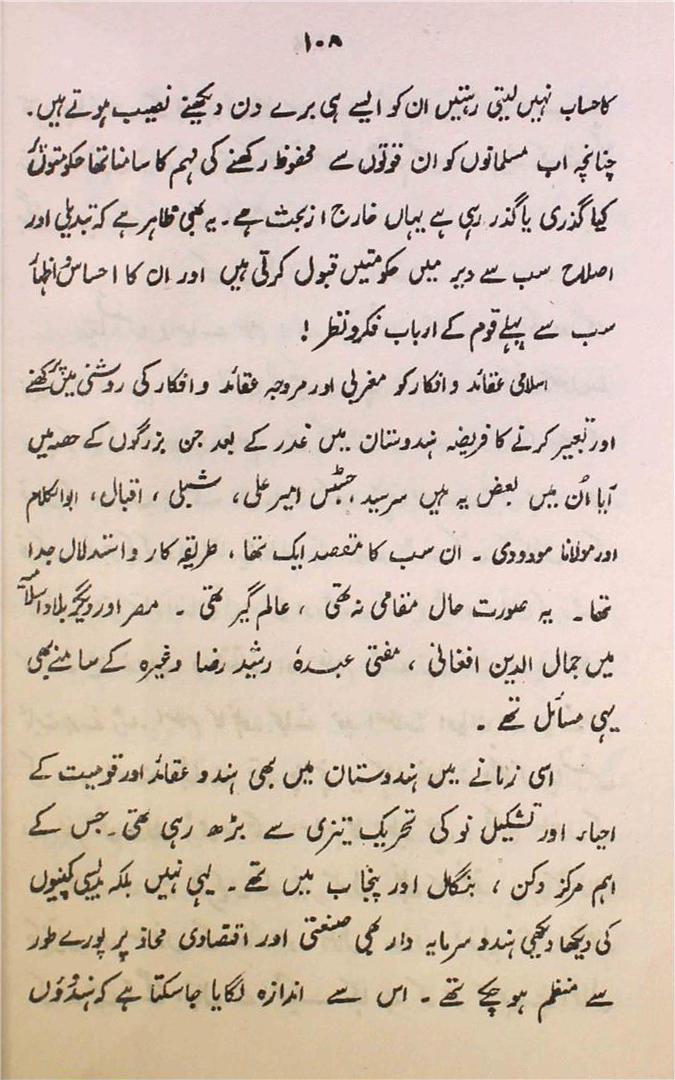 ۱۰۸
کا حساب نہیں لیتی رہتیں ان کو ایسے ہی برے دن دیکھنے نصیب ہوتے ہیں۔
چنانچہ اب مسلمانوں کو ان قوتوں سے محفوظ رکھنے کی مہم کا سامنا تھا حکومتوں پر
کیا گذری یا گذر رہی ہے یہاں خارج از بحث ہے۔ یہ بھی ظاہر ہے کہ تبدیلی اور
اصلاح سب سے دیر میں حکومتیں قبول کرتی ہیں اور ان کا احساس و اظہار
سب سے پہلے قوم کے ارباب فکر و نظر!
اسلامی عقائد و افکار کو مغربی اور مروجہ عقائد و افکار کی روشنی میں پرکھنے
اور تعبیر کرنے کا فریضہ ہندوستان میں غدر کے بعد جن بزرگوں کے حصہ میں
آیا اُن میں بعض یہ ہیں سرسید، جسٹس امیر علی، شبلی، اقبال، ابوالکلام
اور مولانا مودودی۔ ان سب کا مقصد ایک تھا، طریقہ کار و استدلال جدا
تھا۔ یہ صورت حال مقامی نہ تھی، عالم گیر تھی۔ مصر اور دیگر بلاد اسلامیہ
میں جمال الدین افغانی، مفتی عبدہٗ رشید رضا وغیرہ کے سامنے بھی
یہی مسائل تھے۔
اسی زمانے میں ہندوستان میں بھی ہندو عقائد اور قومیت کے
احیاء اور تشکیل نو کی تحریک تیزی سے بڑھ رہی تھی۔ جس کے
اہم مرکز دکن، بنگال اور پنجاب میں تھے۔ یہی نہیں بلکہ بدیسی کمپنیوں
کی دیکھا دیکھی ہندو سرمایہ دار بھی صنعتی اور اقتصادی محاذ پر پورے طور
سے منظم ہو چکے تھے۔ اس سے اندازہ لگایا جاسکتا ہے کہ ہندوؤں